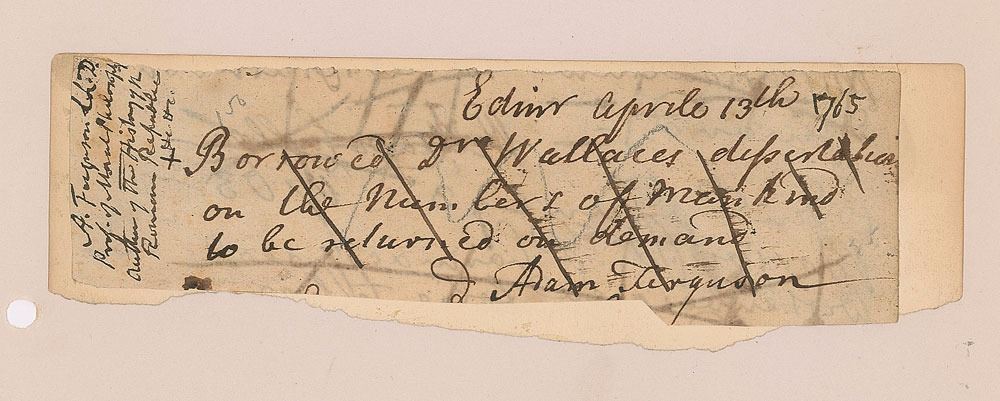 Edinr Aprile 13th 1765
Borrowed Dr Wallaces dissertation
on the Numbers of Mankind
to be returned on demand
Adam Ferguson
A. Ferguson LL.D.
Prof. of Moral Philosophy
Author of The History of the
Roman Republic
&c. &c.